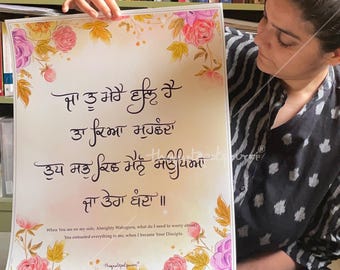 ਜਾ ਤੂ ਮੇਰੈ ਵਲਿ ਹੈ
ਤਾ ਕਿਆ ਮੁਹਛੰਦਾ
ਤੁਧੁ ਸਭੁ ਕਿਛੁ ਮੈਨੋ ਸਉਪਿਆ
ਜਾ ਤੇਰਾ ਬੰਦਾ ॥
When You are on my side, Almighty Waheguru, what do I need to worry about?
You entrusted everything to me, when I became Your Disciple.